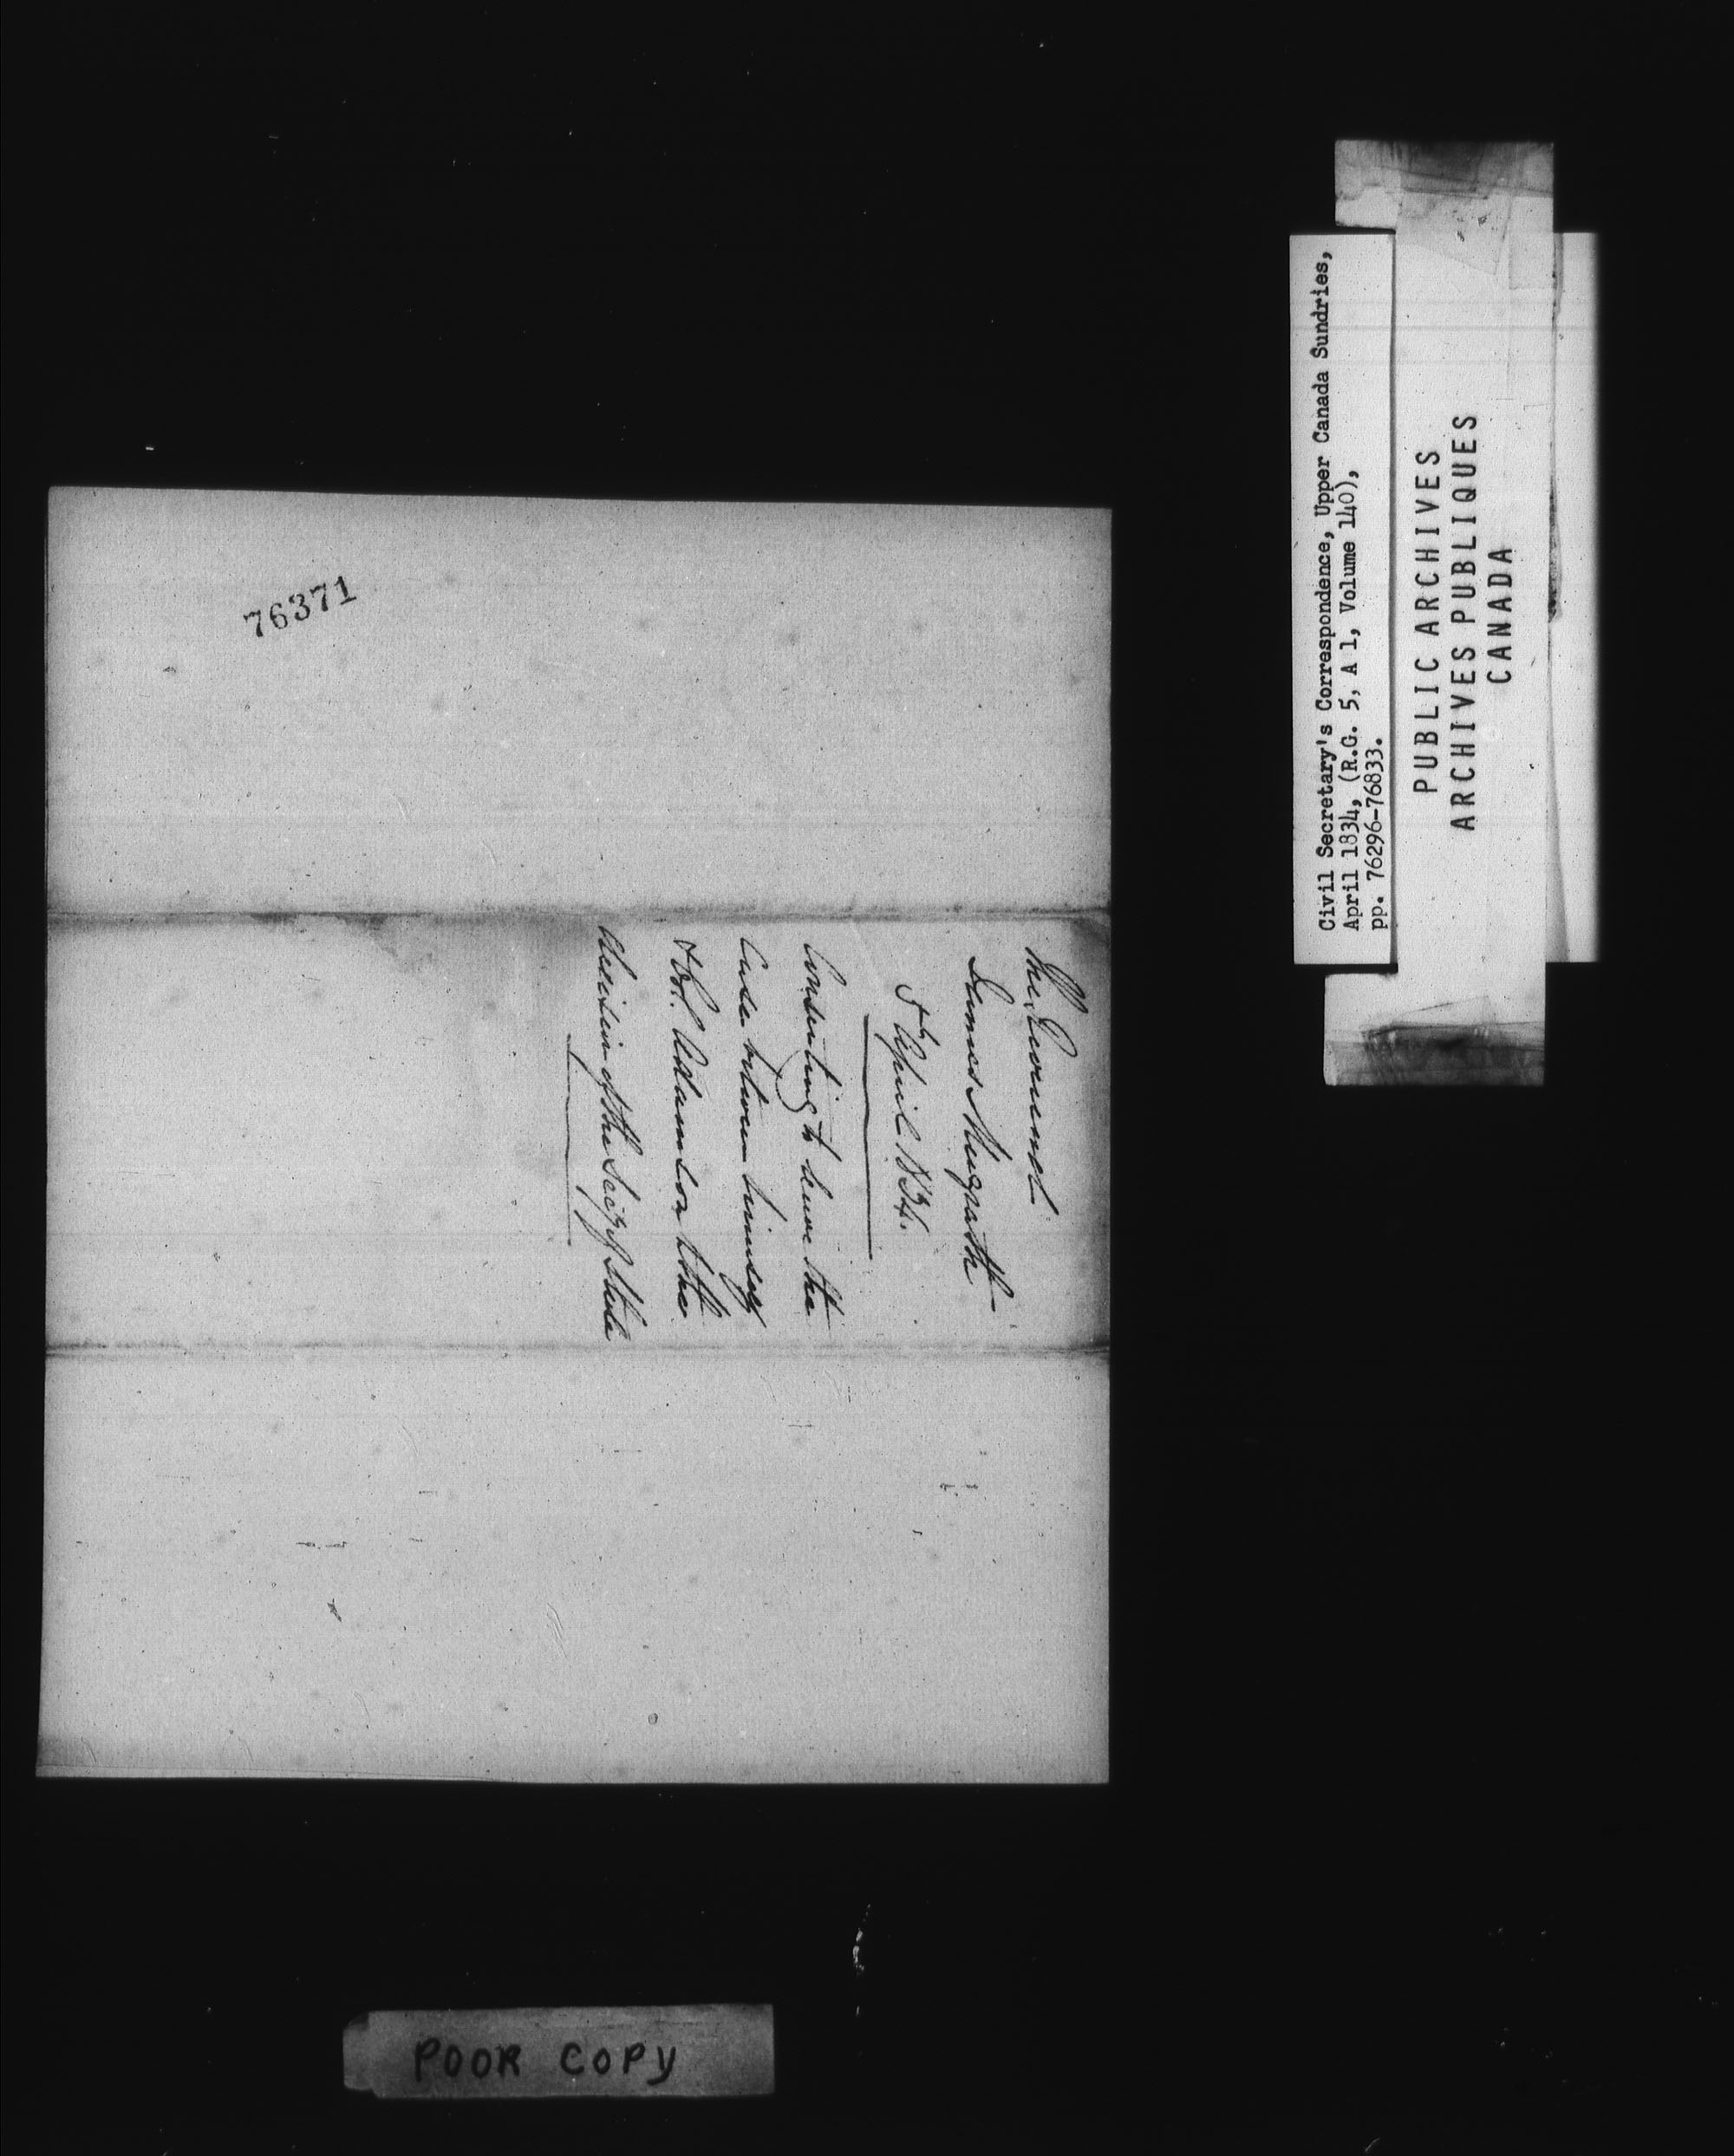 76371
The Reverend
James Magrath
5th April 1834.
Consenting to have the
Case between himself
& Col. Adamson to the
decision of the Secy of State
Civil Secretary's Correspondence, Upper Canada Sundries,
April 1834, (R.G. 5, A 1, Volume 140),
pp. 76296-76833.
PUBLIC ARCHIVES
ARCHIVES PUBLIQUES
CANADA
POOR COPY